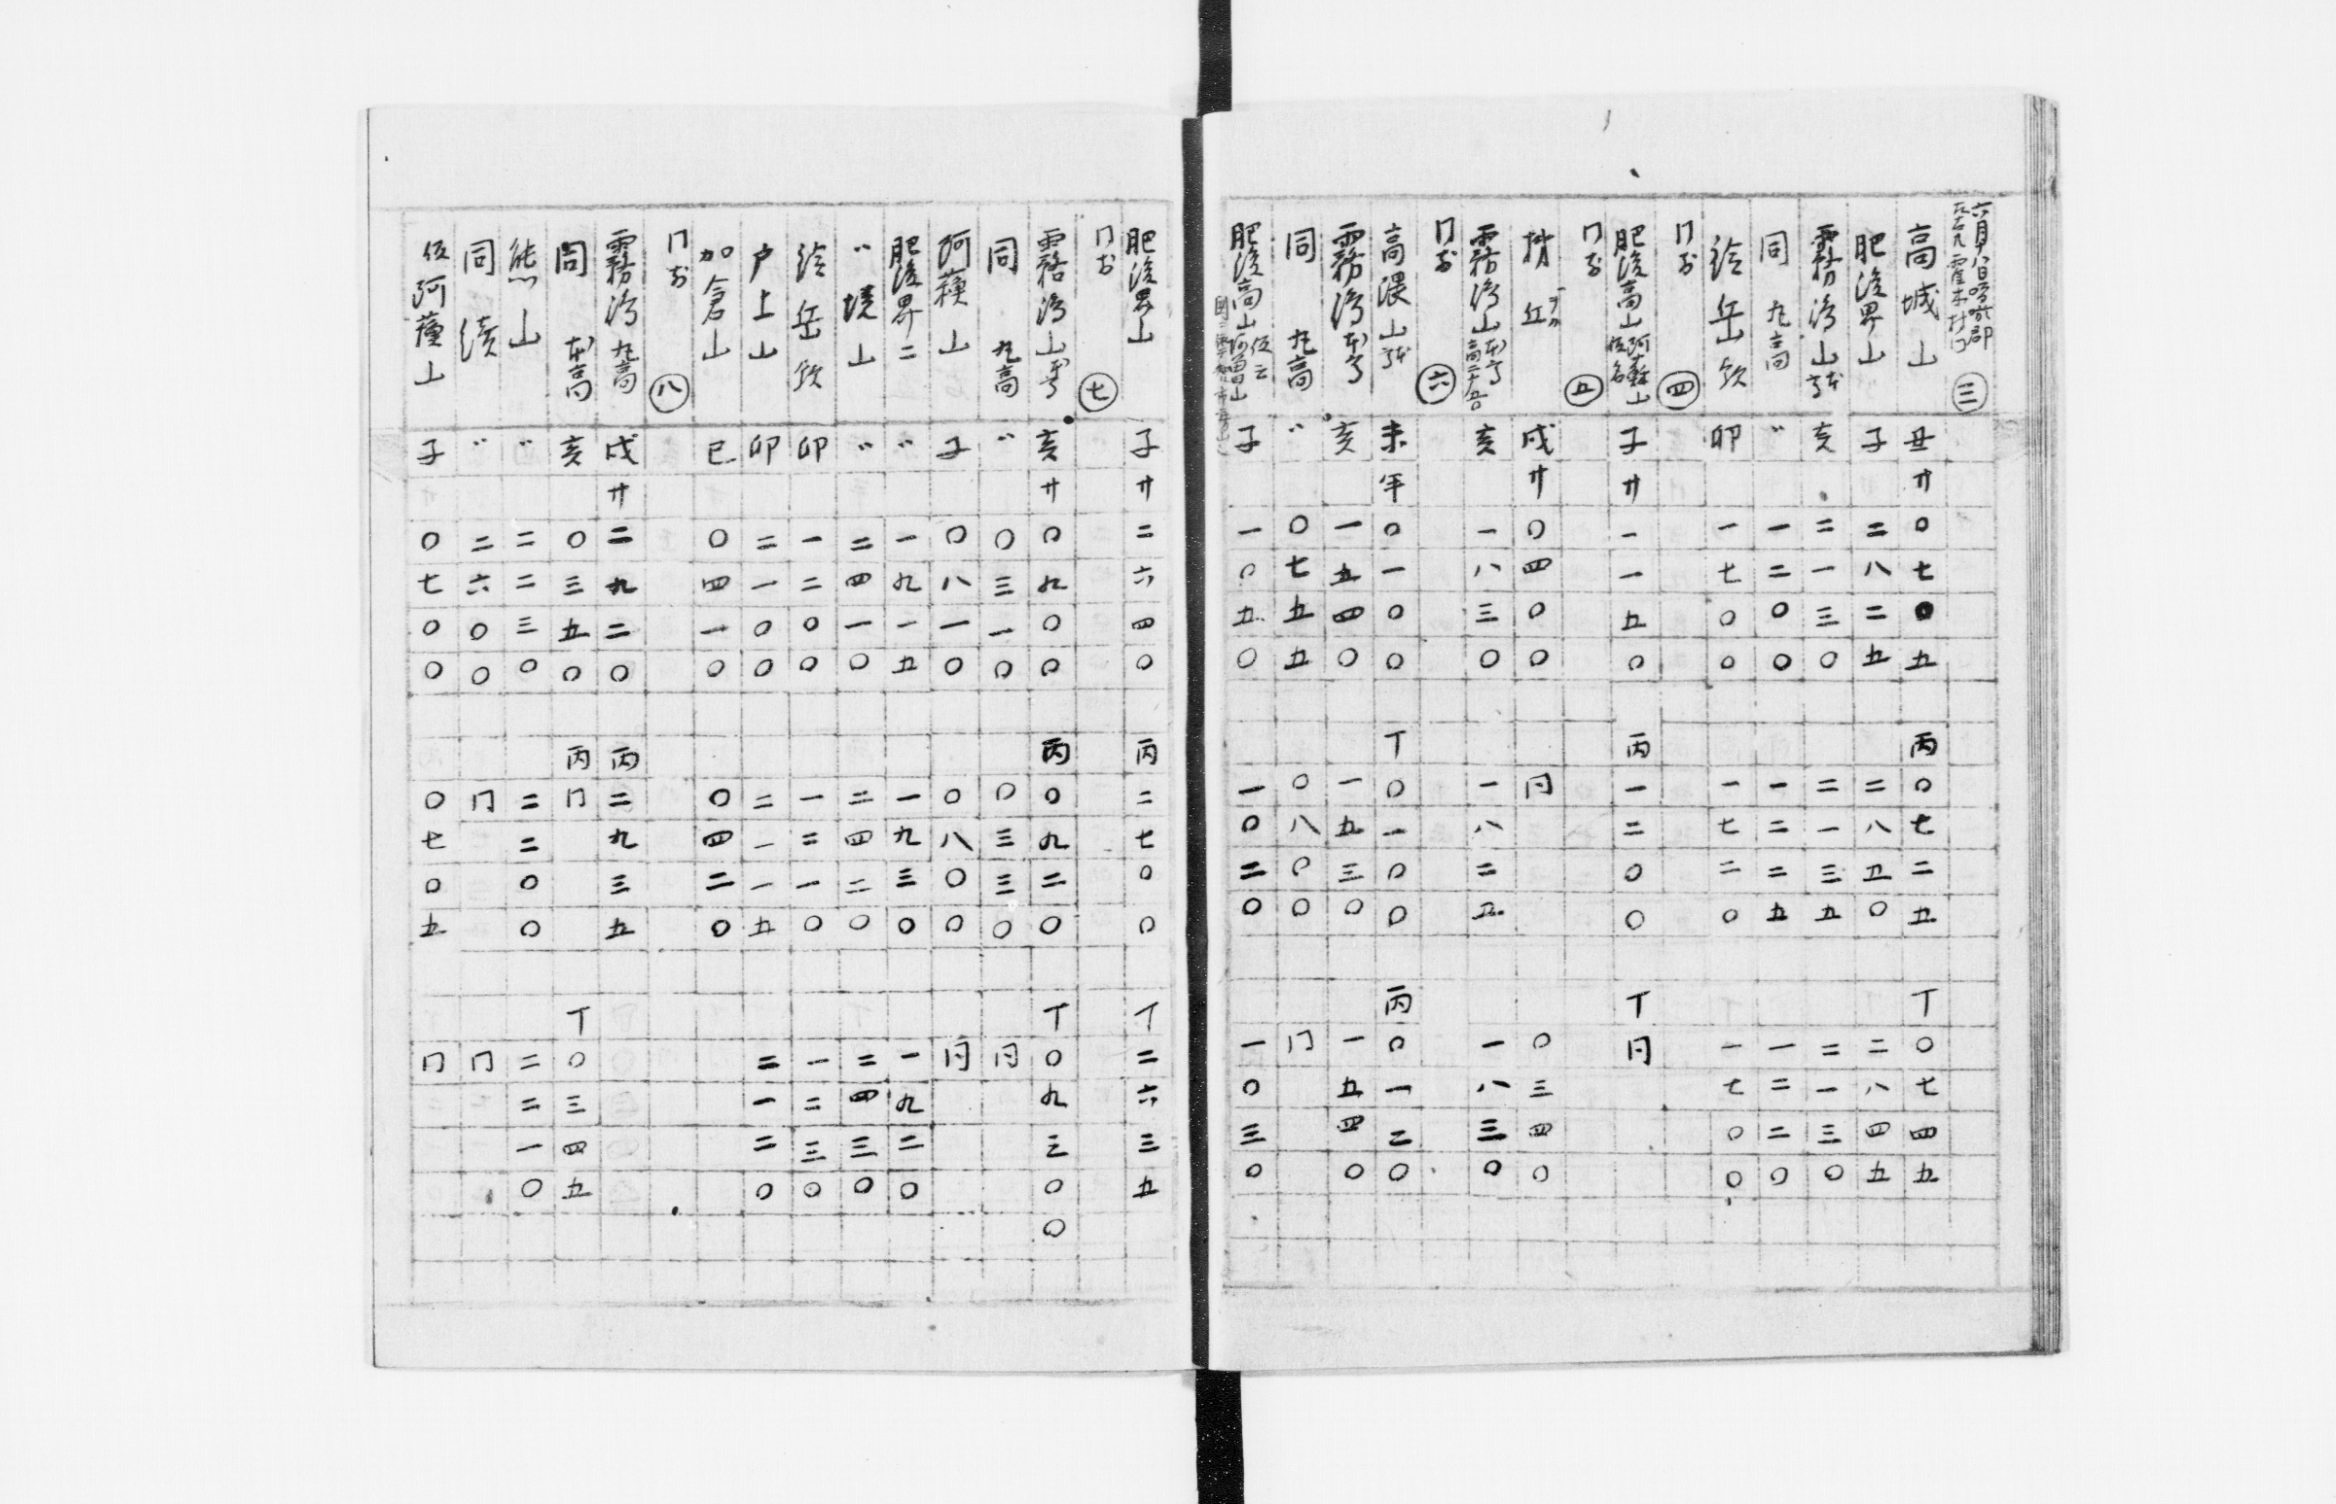 六月八日
㊂
高城山 丑 廾 〇七〇五 丙 〇七二五 丁 〇七四五
肥後界山 子 二八二五 二八五〇 二八四五
霧島山 亥 二一三〇 二一三五 二一三〇
同 九高 〃 一二〇〇 一二二五 一二二〇
岳 卯 一七〇〇 一七二〇 一七〇〇
㊃
肥後高山 子 廾 一一五〇 丙 一二〇〇 丁 同
㊄
丘 戌 廾 〇四〇〇 同 〇三四〇
霧島山 亥 一八三〇 一八二五 一八三〇
㊅
高隈山 未 平 〇一〇〇 丁 〇一〇〇 丙 〇一二〇
霧島 亥 一五四〇 一五三〇 一五四〇
同 九高 〃 〇七五五 〇八〇〇 同
肥後高山 子 一〇五〇 一〇二〇 一〇三〇
肥後界山 子 廾 二六四〇 丙 二七〇〇 丁 二六三五
㊆
霧島山 亥 廾 〇九〇〇 丙 〇九二〇 丁 〇九三〇〇
同 九高 〃 〇三一〇 〇三三〇 同
阿蘓山 子 〇八一〇 〇八〇〇 同
肥後界二 〃 一九一五 一九三〇 一九二〇
〃 境山 〃 二四一〇 二四二〇 二四三〇
岳 卯 一二〇〇 一二一〇 一二三〇
戸上山 卯 二一〇〇 二一一五 二一二〇
加倉山 巳 〇四一〇 〇四二〇
㊇
霧島 九高 戌 廾 二九二〇 丙 二九三五
同 本高 亥 〇三五〇 丙 同 丁 〇三四五
熊山 〃 二二三〇 二二〇〇 二二一〇
同 续 〃 二六〇〇 同 同
仮阿蘓山 子 〇七〇〇 〇七〇五 同